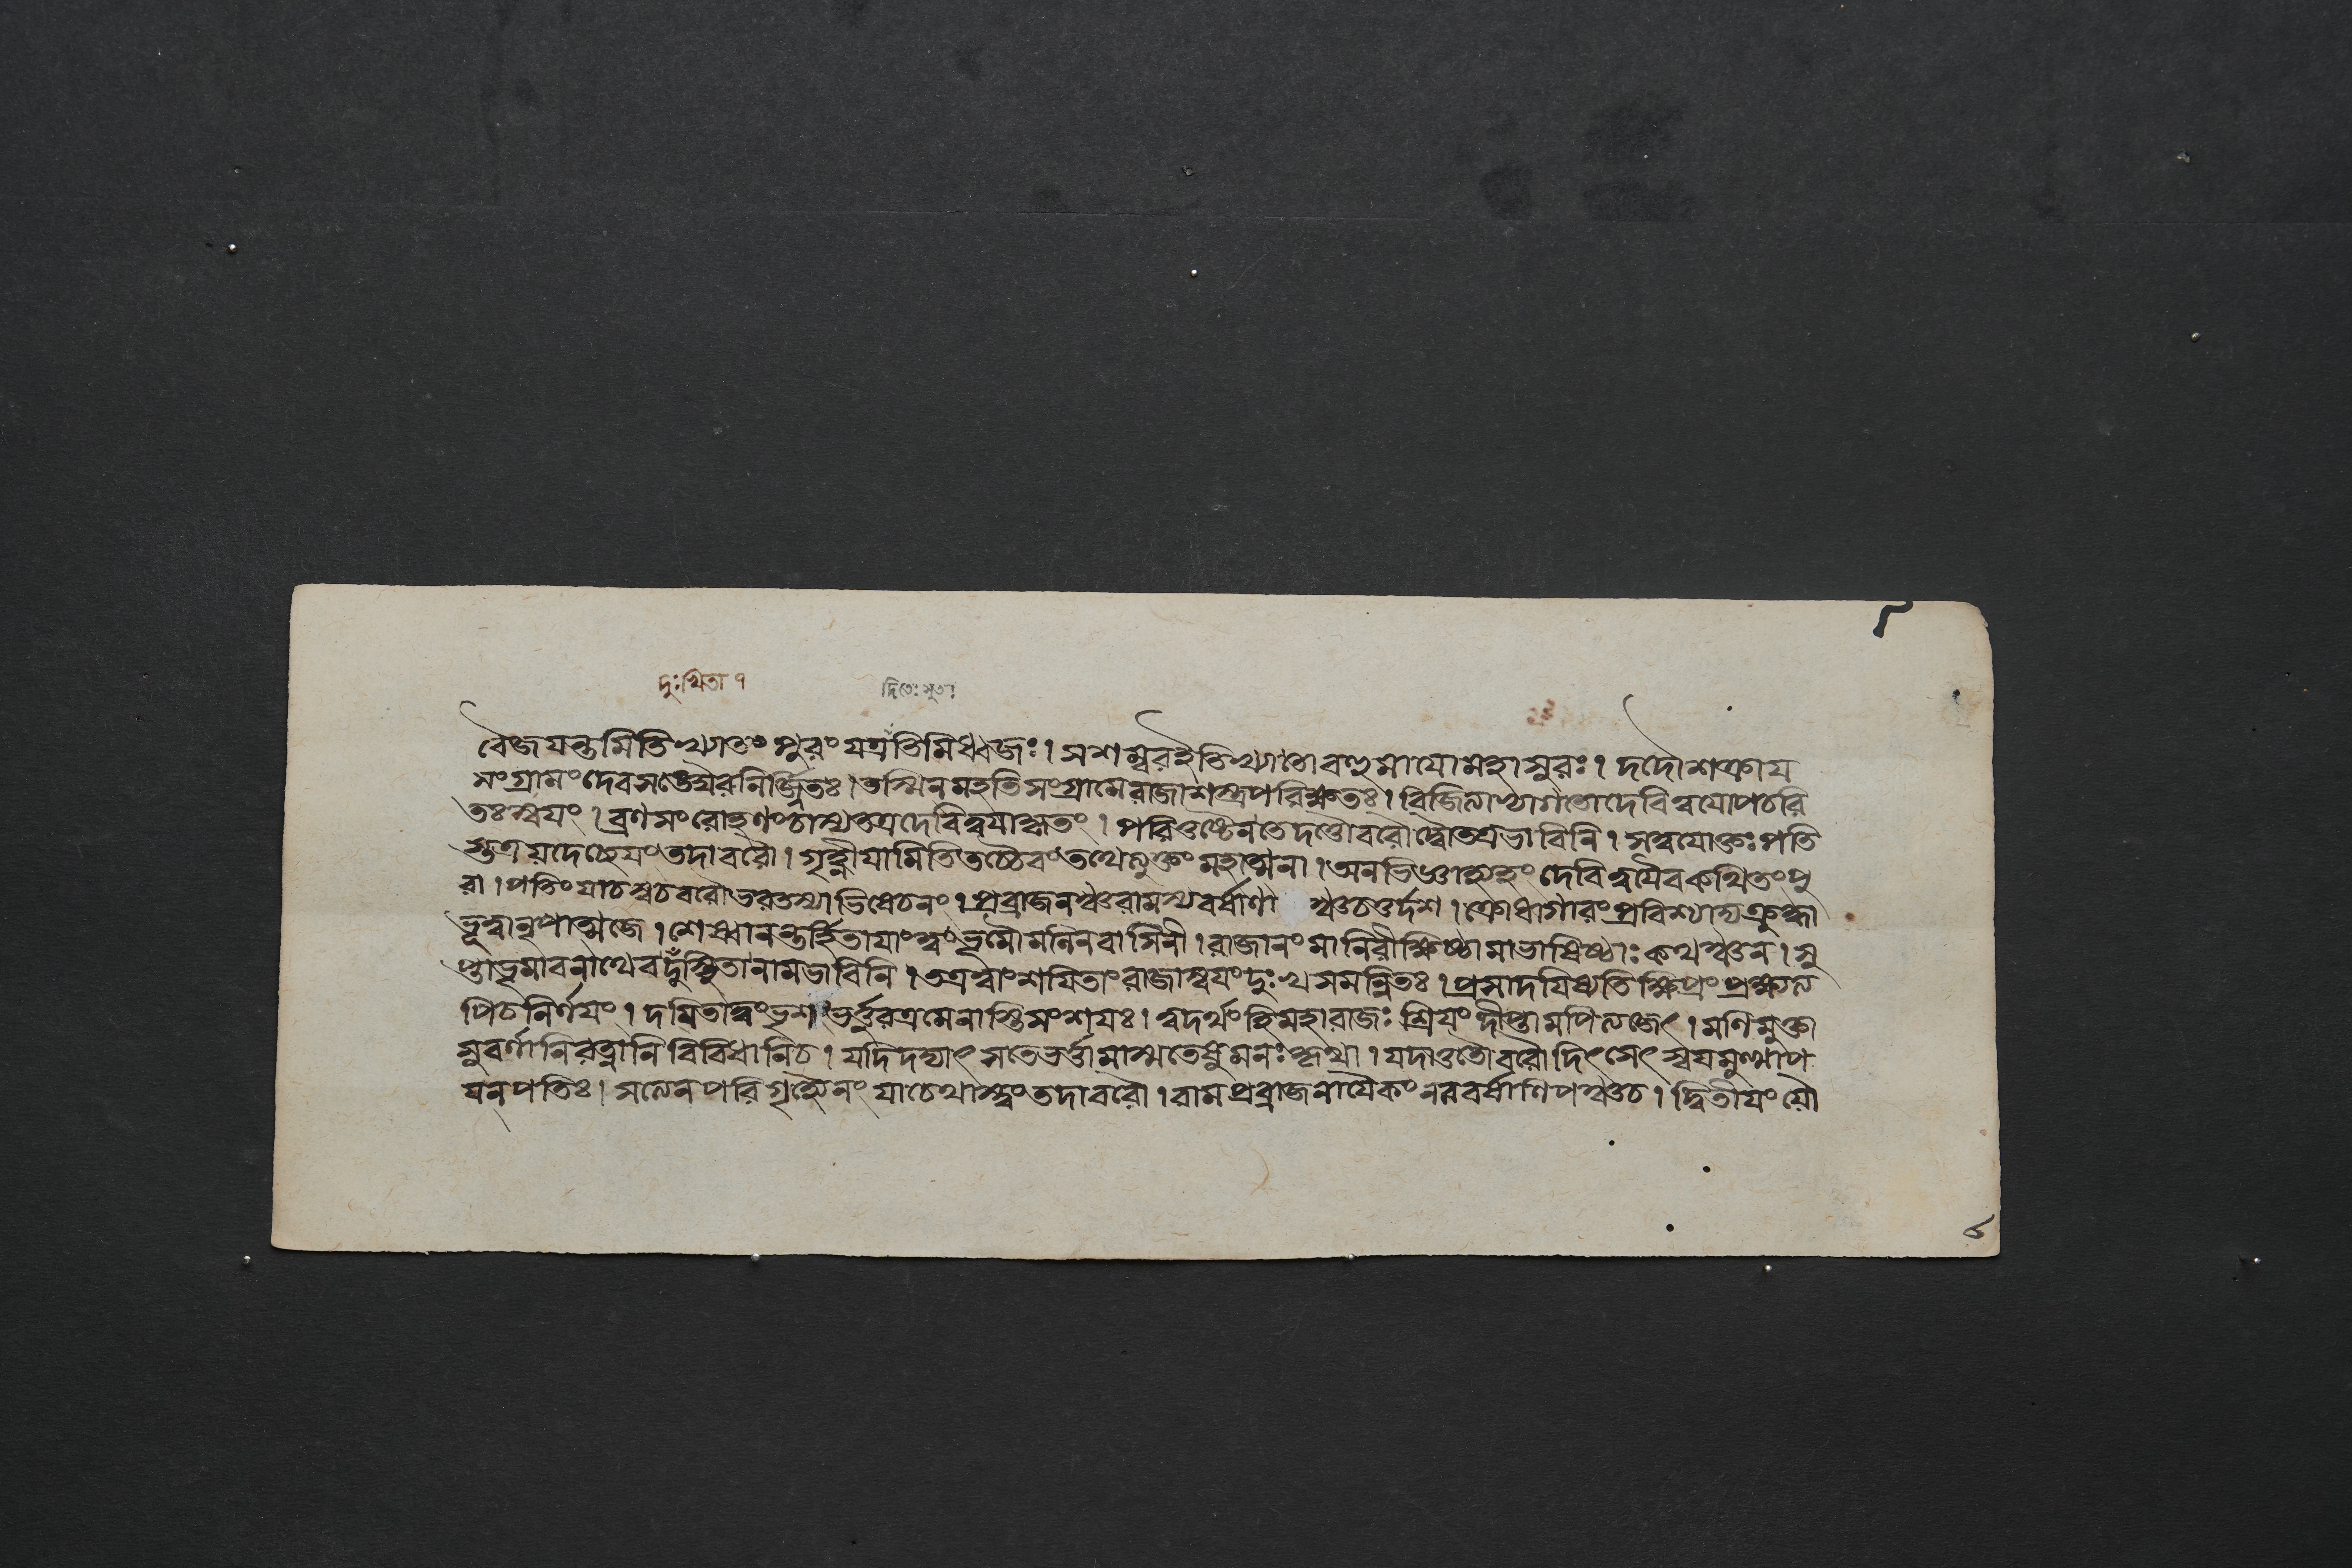 বৈজয়ন্তমিতিখ্যাতং পুরং যত্রতিমিধ্বজঃ। সশম্বরইতিখ্যাতোবহুমায়োমহাসুরঃ। দদৌশক্রায়
সংগ্রামং দেবসঙ্ঘৈরনির্জ্জিতঃ। তস্মিনমহতিসংগ্রামেরাজাশস্ত্রপরিক্ষতঃ। বিজিত্যাভ্যাগতোদেবিত্বয়োপচরি
তঃস্বয়ং। ব্রণসংরোহণংচাস্যতত্রদেবিত্বয়াকৃতং। পরিতুষ্টেনতেদত্তৌবরৌদ্বৌতত্রভাবিনি। সত্বয়োক্তঃপতি
স্তত্রয়দেচ্ছেয়ংতদাবরৌ। গৃহ্ণীয়ামিতিতচ্চৈবংতথেত্যুক্তংমহাত্মনা। অনভিজ্ঞাহ্যহংদেবিত্বয়ৈবকথিতংপু
রা। পতিংযাচস্বচবরৌভরতস্যাভিষেচনং। প্রব্রাজনঞ্চরামস্যবর্ষাণা ঞ্চচতুর্দশ। ক্রোধাগারংপ্রবিশ্যাদ্যক্রুদ্ধা
ভূত্বানৃপাত্মজে। শেষ্বানন্তর্হিতায়াংত্বংভূমৌমলিনবাসিনী। রাজানংমানিরীক্ষিষ্ঠামাভাষিষ্ঠাঃকথঞ্চন। সু
প্তাভূমাবনাথেবদুঁস্থিতানামভাবিনি। তত্রত্বাংশয়িতাংরাজাস্বয়ংদুঃখসমন্বিতঃ। প্রসাদয়িষ্যতিক্ষিপ্রংপ্রক্ষ্যত্য
পিচনির্ণয়ং। দয়িতাত্বংভৃশংভর্ত্তুরত্রমেনাস্তিসংশয়ঃ। ত্বদর্থংহিমহারাজঃশ্রিয়ংদীপ্তামপিত্যজেৎ। মণিমুক্তা
সুবর্ণানিরত্নানিবিবিধানিচ। যদিদদ্যাৎ সতেভর্ত্তামাস্মতেষুমনঃকৃথা। যদাতুতৌবরৌদিৎসেৎস্বয়মুত্থাপ
য়নপতিঃ। সত্যেনপরিগৃহ্যৈনংযাচেথাস্ত্বংতদাবরৌ। রামপ্রব্রাজনায়ৈকংনববর্ষাণিপঞ্চচ। দ্বিতীয়ংয়ৌ
দুঃখিতা ৭
দিতেঃসুতঃ